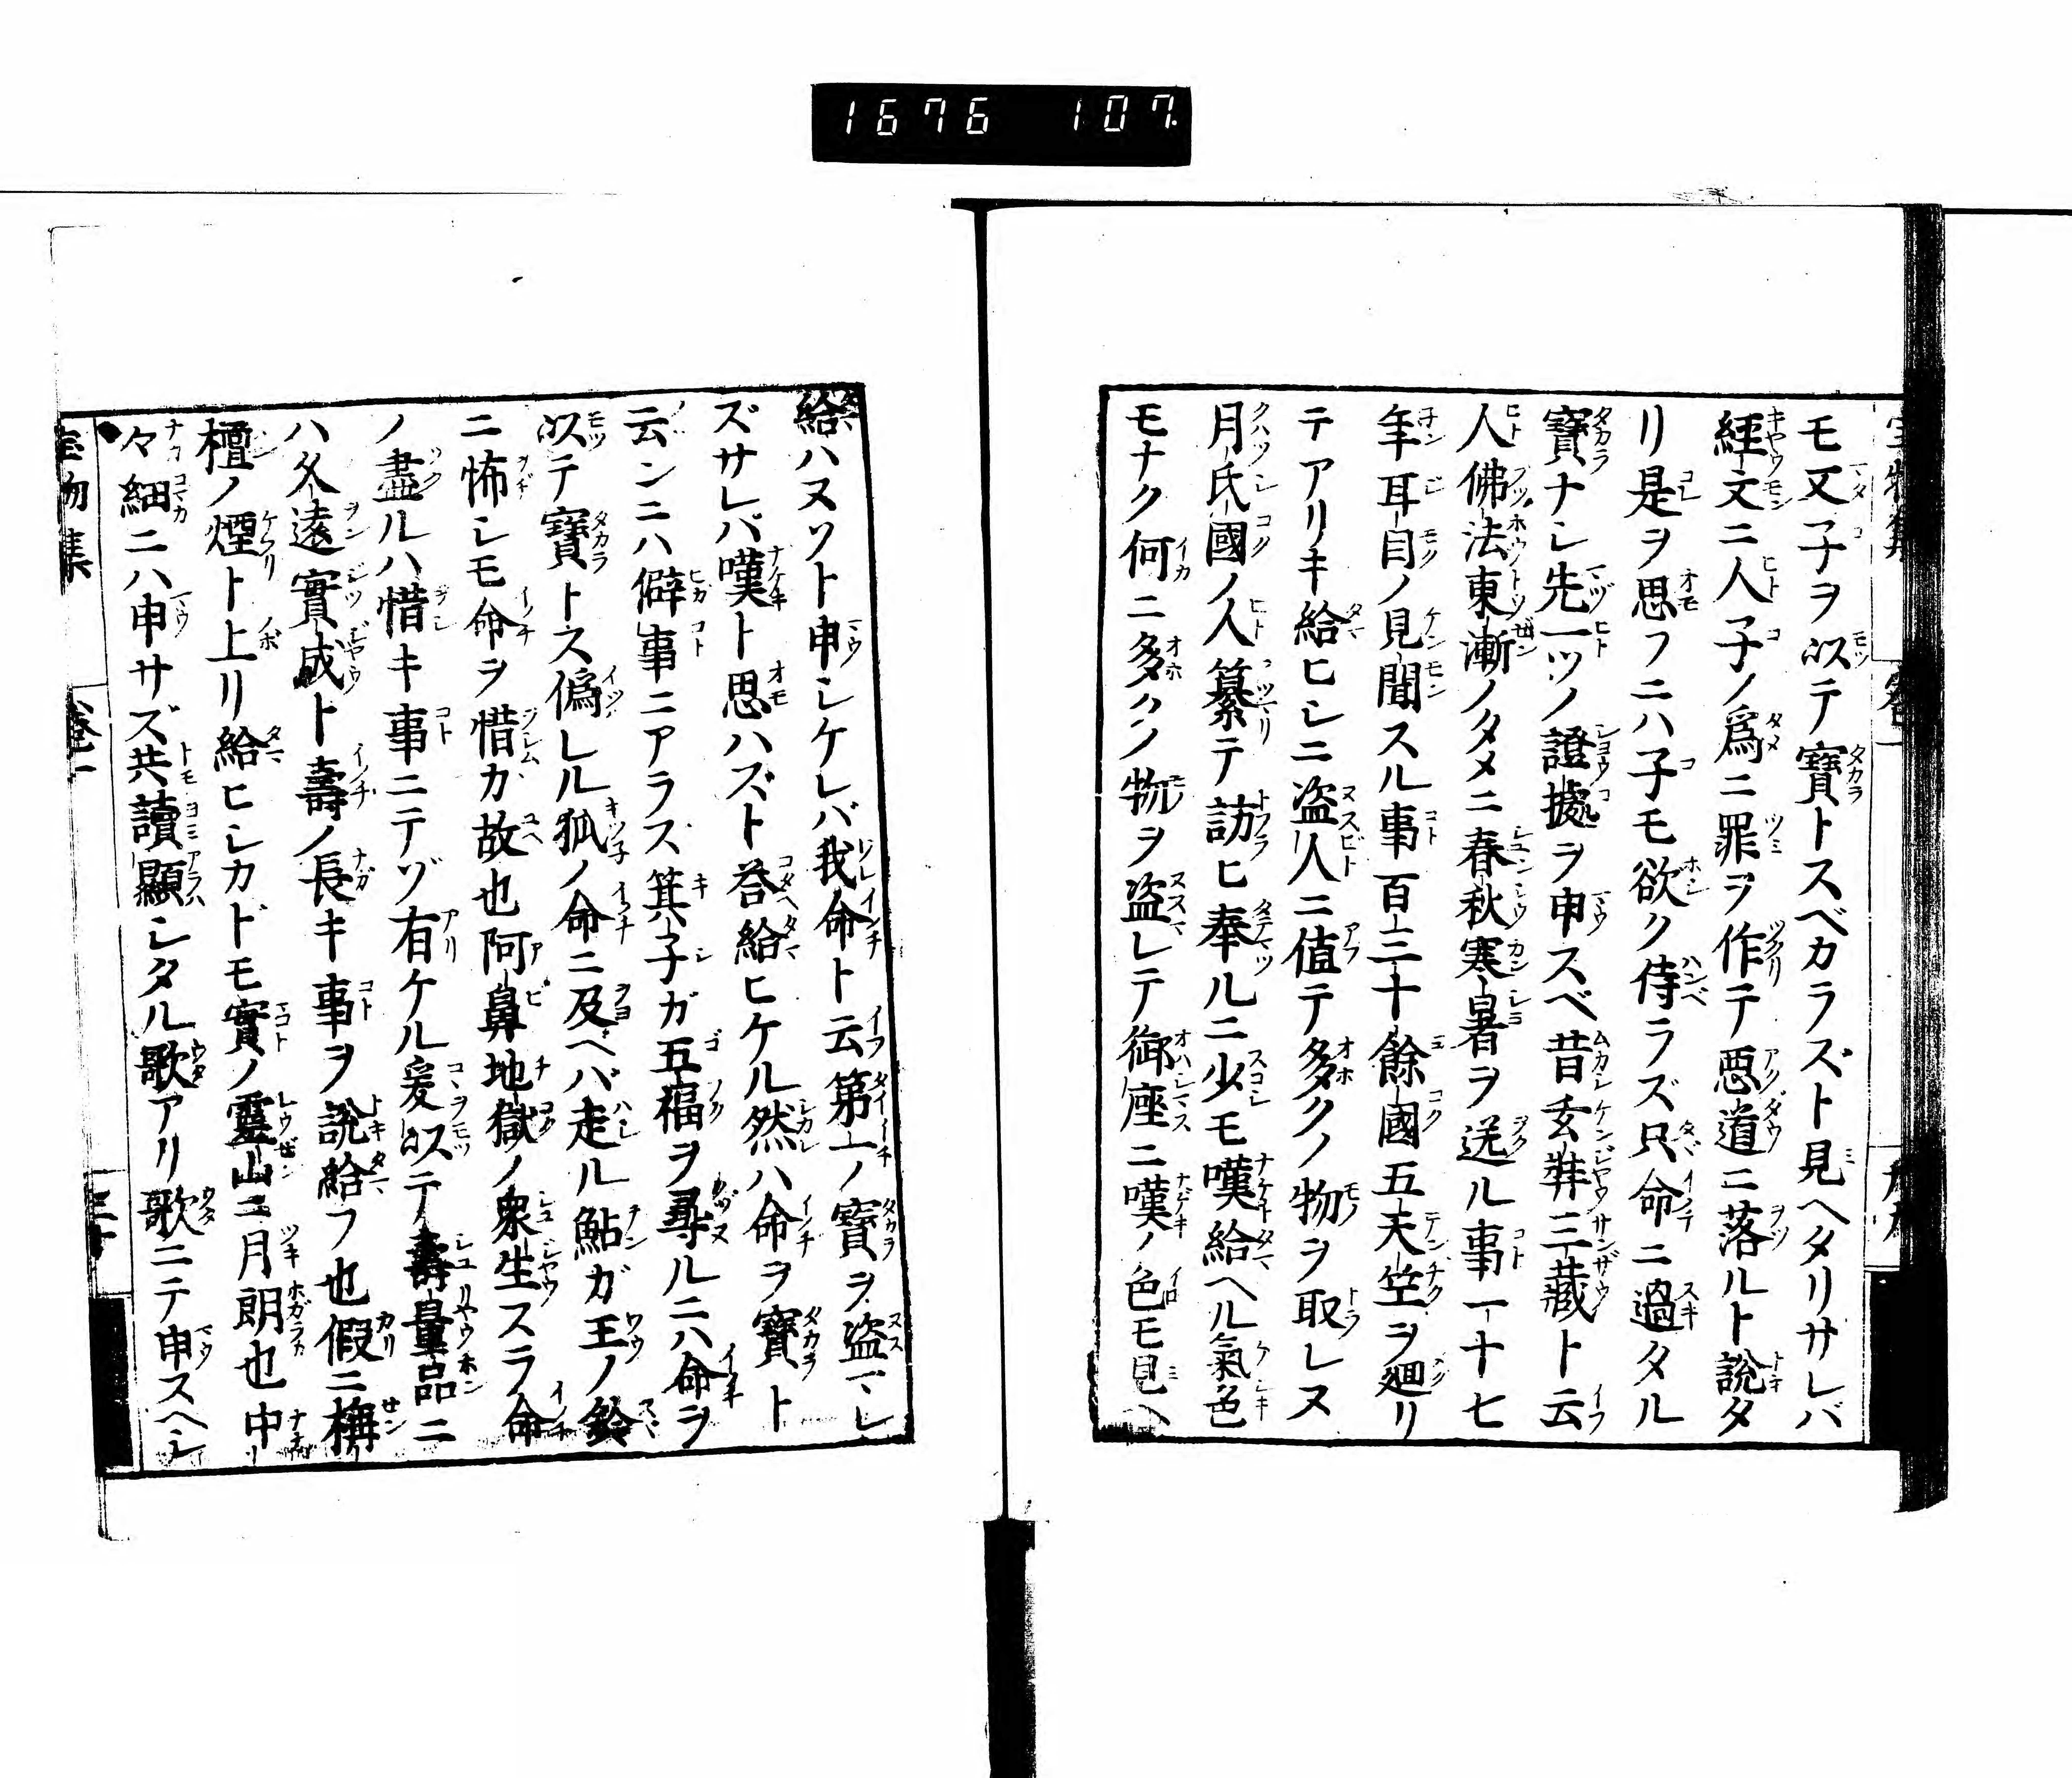 1676 107.
モ又子ヲ以テ寶トスベカラズト見ヘタリサレバ
經文ニ人子ノ爲ニ罪ヲ作テ悪道ニ落ルト說タ
リ是ヲ思フニハ子モ欲ク侍ラズ只命ニ過タル
寶ナシ先一ツノ證據ヲ申スベ昔玄弉三藏ト云
人佛法東漸ノタメニ春秋寒暑ヲ送ル事一十七
年耳目ノ見聞スル事百三十餘國五天竺ヲ廻リ
テアリキ給ヒシニ盗人ニ値テ多クノ物ヲ取レヌ
月氏國ノ人纂テ訪ヒ奉ルニ少モ嘆給ヘル氣色
モナク何ニ多クノ物ヲ盗レテ御座ニ嘆ノ色モ見ヘ
給ハヌソト申シケレバ我命ト云第一ノ寳ヲ盗マレ
ズサレバ嘆ト思ハズト答給ヒケル然ハ命ヲ寶ト
云ンニハ僻事ニアラス箕子ガ五福ヲ尋ルニハ命ヲ
以テ寶トス偽レル狐ノ命ニ及ヘバ走ル鮎ガ王ノ鈴
ニ怖レモ命ヲ惜カ故也阿鼻地獄ノ衆生スラ命
ノ盡ルハ惜キ事ニテゾ有ケル爰以テ壽量品ニ
ハ久遠實成ト壽ノ長キ事ヲ說給フ也假ニ栴
檀ノ煙ト上リ給ヒシカドモ實ノ靈山ニ月朗也中
々細ニハ申サズ共讀顯シタル歌アリ歌ニテ申スヘシ
寳物集 卷一